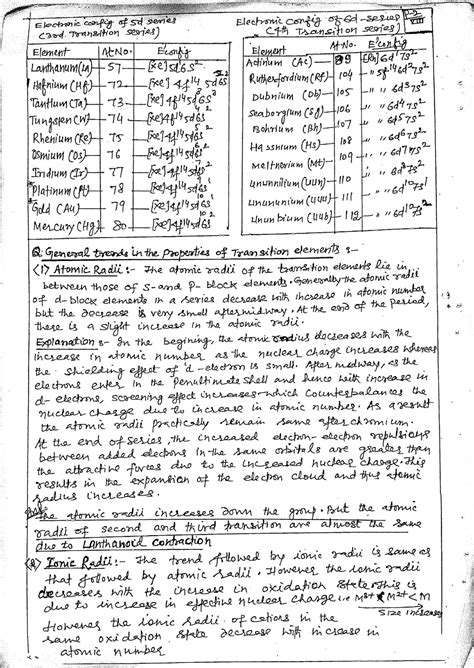 Electronic config of 5d series
(3rd Transition series)
Element At No. E.config
Lanthanum (La) — 57 — [Xe] 5d¹6s²
Hafnium (Hf) — 72 — [Xe] 4f¹⁴ 5d²6s²
Tantlum (Ta) — 73 — [Xe] 4f¹⁴ 5d³6s²
Tungsten (W) — 74 — [Xe] 4f¹⁴ 5d⁴6s²
Rhenium (Re) — 75 — [Xe] 4f¹⁴ 5d⁵6s²
Osmium (Os) — 76 — [Xe] 4f¹⁴ 5d⁶6s²
Iridium (Ir) — 77 — [Xe] 4f¹⁴ 5d⁷6s²
Platinum (Pt) — 78 — [Xe] 4f¹⁴ 5d⁹6s¹
Gold (Au) — 79 — [Xe] 4f¹⁴ 5d¹⁰6s¹
Mercury (Hg) — 80 — [Xe] 4f¹⁴ 5d¹⁰6s²
Electronic config of 6d-series
(4th Transition series)
Element At No. E.config
Actinium (Ac) 89 [Rn] 6d¹7s²
Rutherfordium (Rf) — 104 — " 5f¹⁴6d²7s²
Dubnium (Db) — 105 — " " 6d³7s²
Seaborgium (Sg) — 106 — " " 6d⁴7s²
Bohrium (Bh) — 107 — " " 6d⁵7s²
Hassnium (Hs) — 108 — " " 6d⁶7s²
Meitnerium (Mt) — 109 — " " 6d⁷7s²
Ununnilium (Uun) — 110 — " "
Unununium (Uuu) — 111 — " " 6d¹⁰7s¹
Ununbium (Uub) — 112 — " " 6d¹⁰7s²
Q. General trends in the Properties of Transition elements :-
(1) Atomic Radii :- The atomic radii of the transition elements lie in
between those of s- and p-block elements. Generally the atomic radii
of d-block elements in a series decrease with increase in atomic number
but the decrease is very small after midway. At the end of the period,
there is a slight increase in the atomic radii.
Explanation :- In the begining, the atomic radius decreases with the
increase in atomic number as the nuclear charge increases whereas
the shielding effect of 'd'-electron is small. After midway, as the
electrons enter in the Penultimate shell and hence with increase in
d-electrons, screening effect increases which counterbalances the
nuclear charge due to increase in atomic number. As a result
the atomic radii practically remain same after chromium.
At the end of series, the increased electron-electron repulsions
between added electrons in the same orbitals are greater than
the attractive forces due to the increased nuclear charge. This
results in the expansion of the electron cloud and thus atomic
radius increases.
The atomic radii increases down the group. But the atomic
radii of second and third transition are almost the same
due to Lanthanoid contraction
(2) Ionic Radii :- The trend followed by ionic radii is same as
that followed by atomic radii. However the ionic radii
decreases with the increase in oxidation state. This is
due to increase in effective nuclear charge i.e M³⁺ < M²⁺ < M
Size increases
However the ionic radii of cations in the
same oxidation state decrease with increase in
atomic number